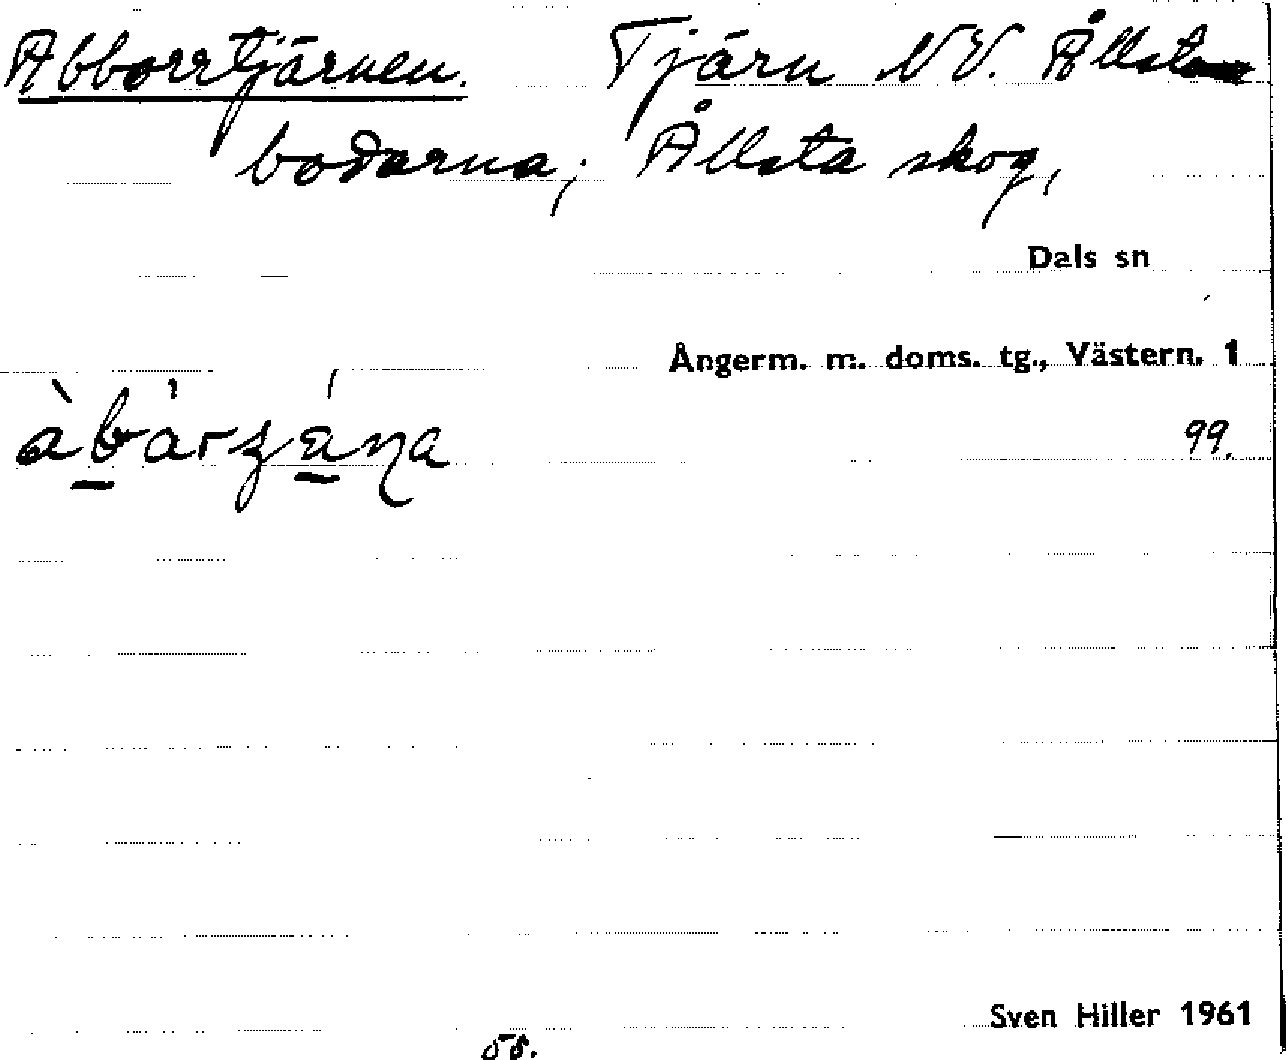 Abborrtjärnen. Tjärn NV. Ållsta
bodarna; Ållsta skog,
Dals sn
Ångerm. m. doms. tg., Västern. 1
99.
Sven Hiller 1961